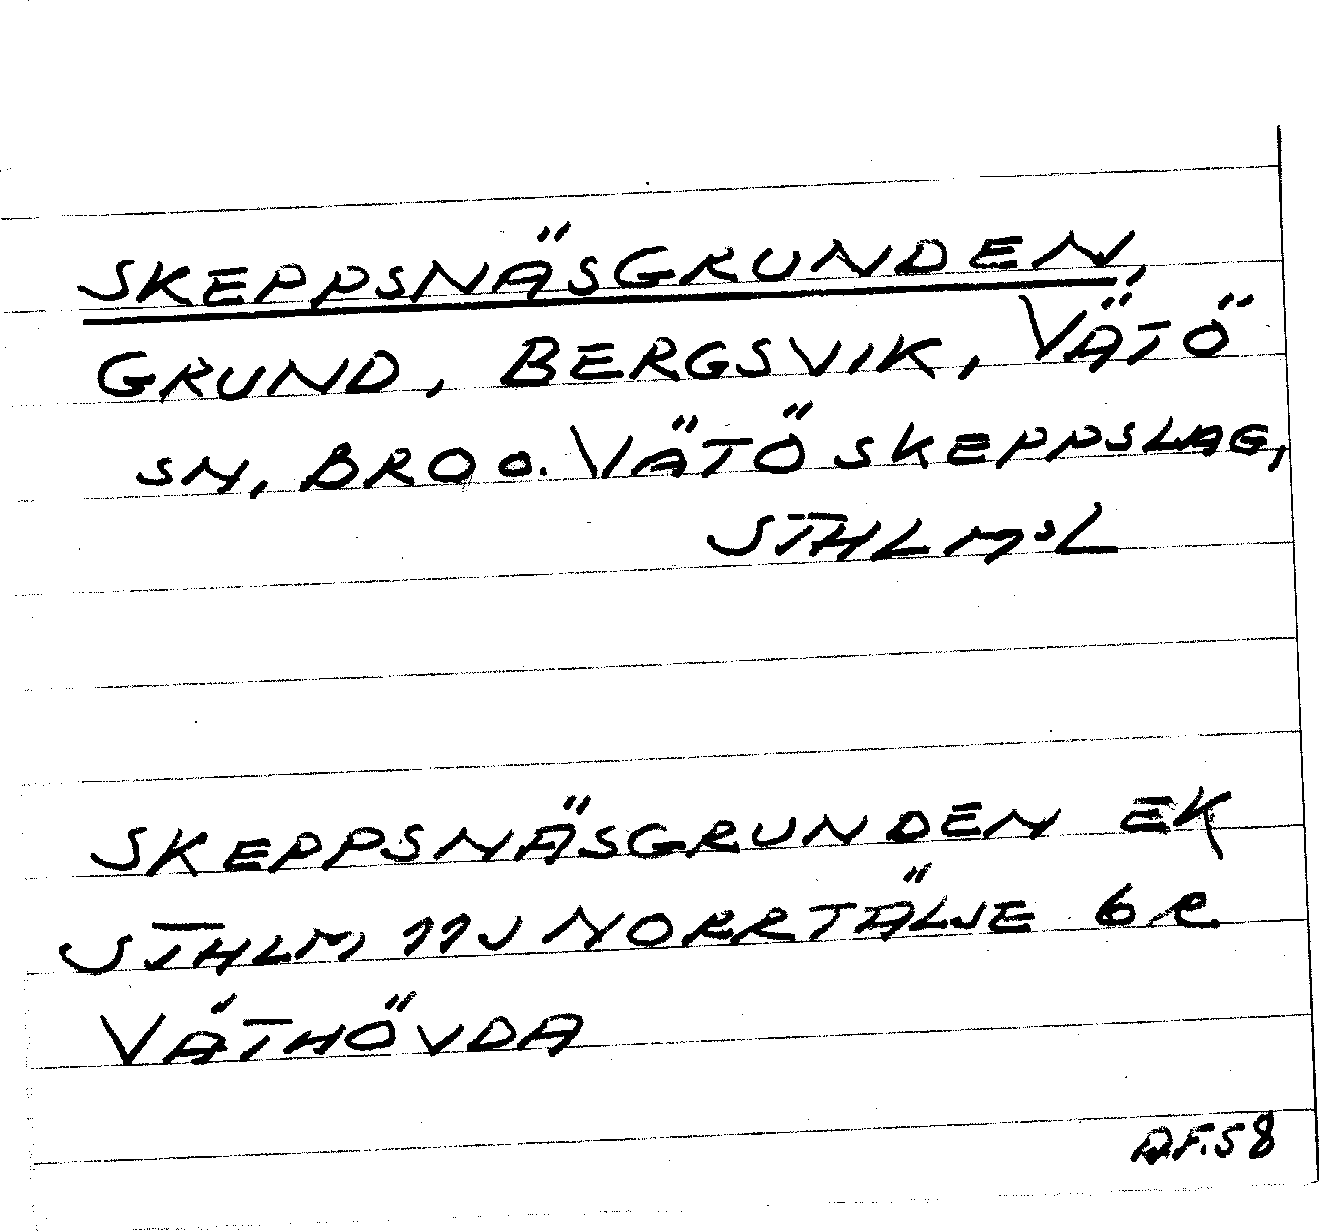 SKEPPSNÄSGRUNDEN,
GRUND, BERGSVIK, VÄTÖ
SN, BRO O. VÄTÖ SKEPPSLAG,
STHLMS L
SKEPPSNÄSGRUNDEN EK
STHLM 11J NORRTÄLJE 6 R
VÄTHÖVDA